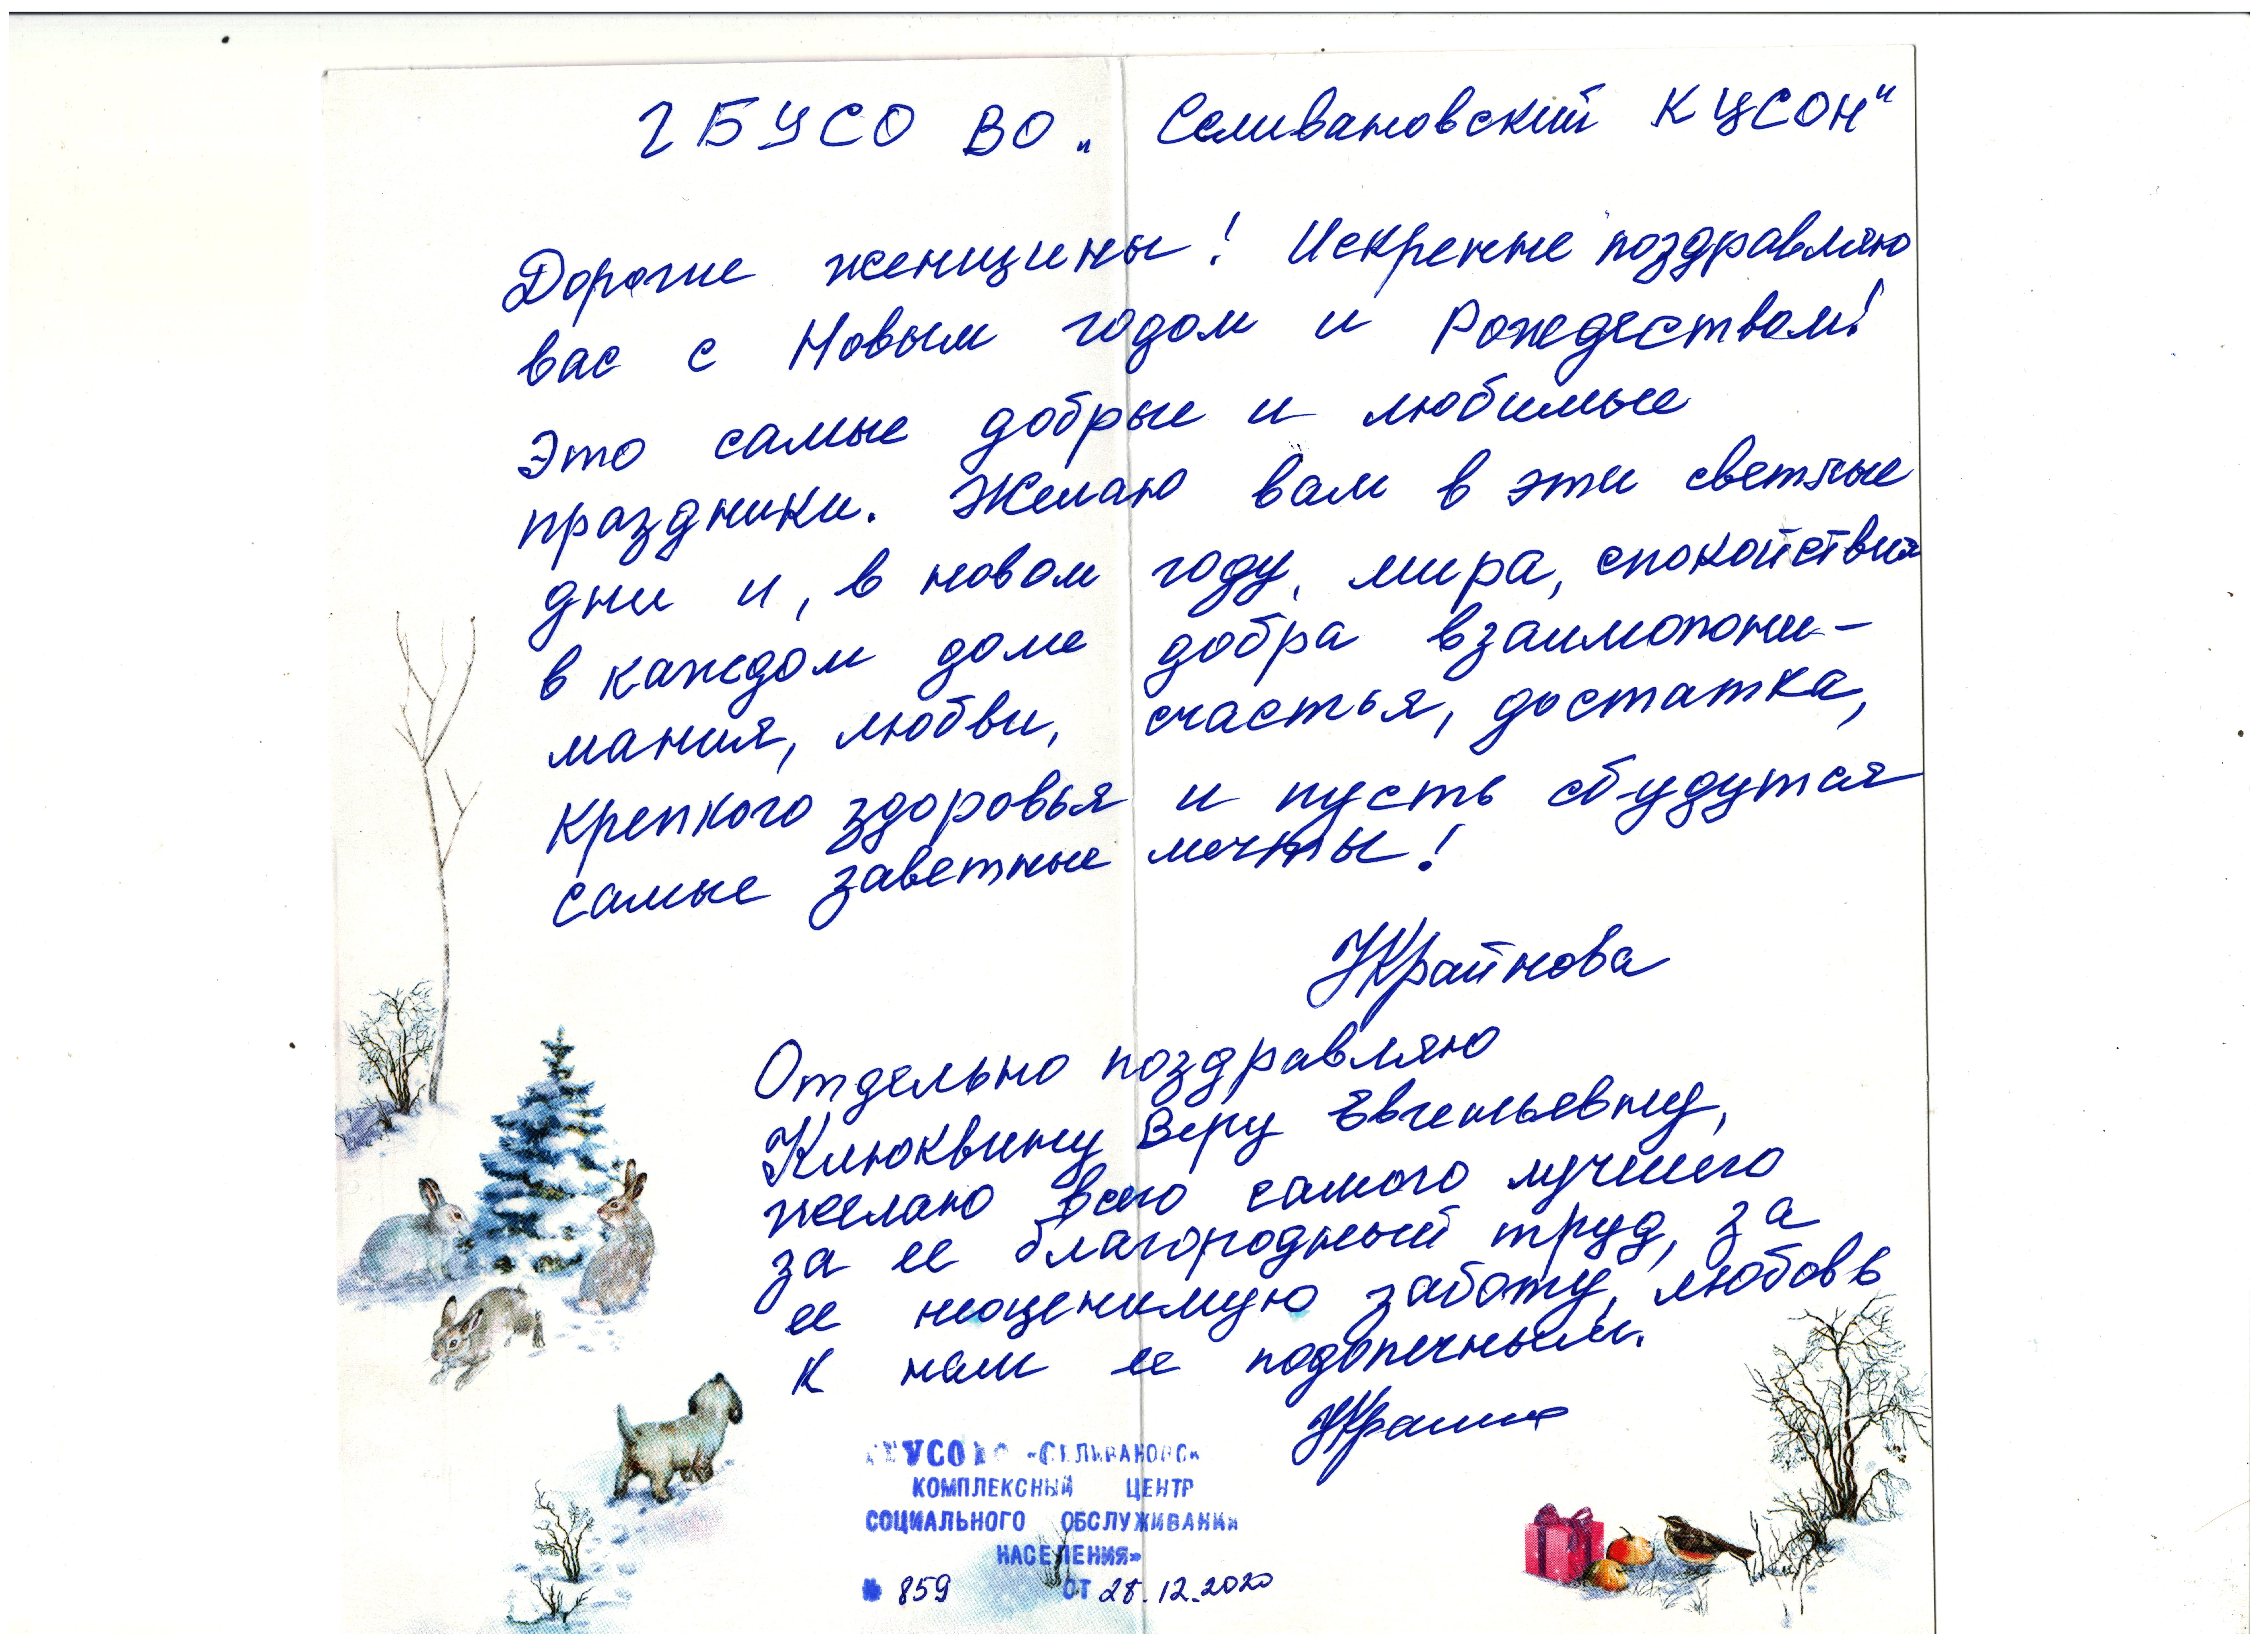 ГБУСО ВО „Селивановский КЦСОН"
Дорогие женщины! Искренне поздравляю
вас с Новым годом и Рождеством!
Это самые добрые и любимые
праздники. Желаю вам в эти светлые
дни и, в новом году, мира, спокойствия
в каждом доме добра взаимопони-
мания, любви, счастья, достатка,
крепкого здоровья и пусть сбудутся
самые заветные мечты!
Крайнова
Отдельно поздравляю
Клюквину Веру Евгеньевну,
желаю всего самого лучшего
за ее благородный труд, за
ее неоценимую заботу, любовь
к нам ее подопечным.
КОМПЛЕКСНЫЙ ЦЕНТР
СОЦИАЛЬНОГО ОБСЛУЖИВАНИЯ
НАСЕЛЕНИЯ»
859 ОТ 28.12.2020